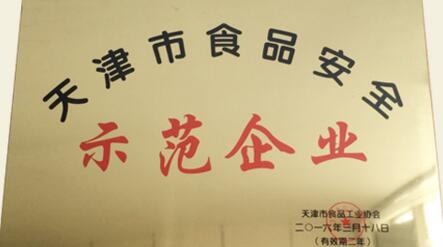 天津市食品安全
示范企业
天津市食品工业协会
二〇一六年三月十八日
(有效期二年)